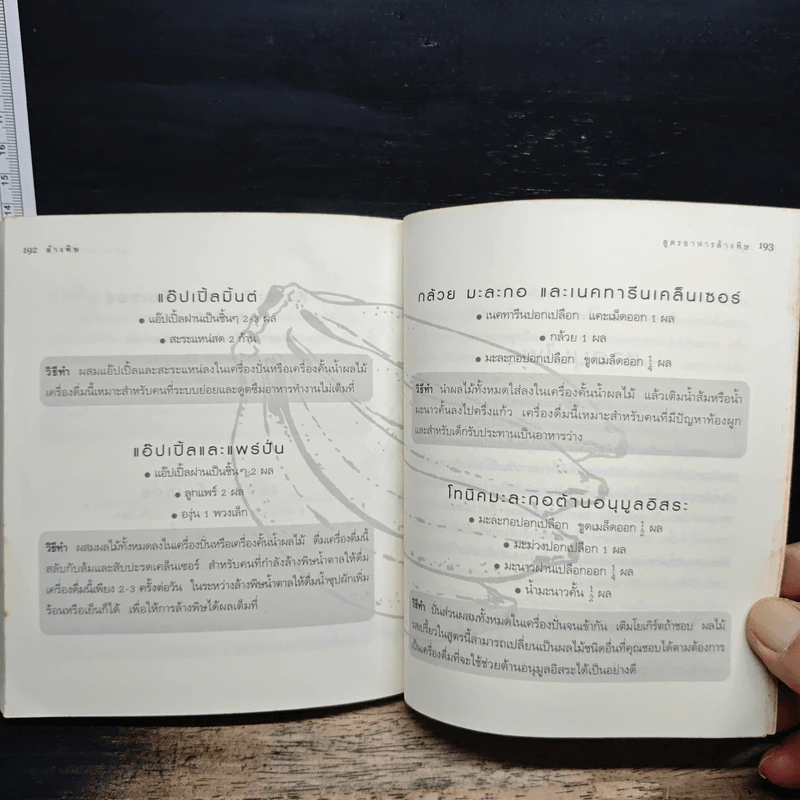 192 ล้างพิษ
แอ๊ปเปิ้ลมิ้นต์
● แอ๊ปเปิ้ลฝานเป็นชิ้นๆ 2-3 ผล
● สะระแหน่สด 2 ก้าน
วิธีทำ ผสมแอ๊ปเปิ้ลและสะระแหน่ลงในเครื่องปั่นหรือเครื่องคั้นน้ำผลไม้
เครื่องดื่มนี้เหมาะสำหรับคนที่ระบบย่อยและดูดซึมอาหารทำงานไม่เต็มที่
แอ๊ปเปิ้ลและแพร์ปั่น
● แอ๊ปเปิ้ลฝานเป็นชิ้นๆ 2 ผล
● ลูกแพร์ 2 ผล
● องุ่น 1 พวงเล็ก
วิธีทำ ผสมผลไม้ทั้งหมดลงในเครื่องปั่นหรือเครื่องคั้นน้ำผลไม้ ดื่มเครื่องดื่มนี้
สลับกับส้มและสับปะรดเคล็นเซอร์ สำหรับคนที่กำลังล้างพิษน้ำตาลให้ดื่ม
เครื่องดื่มนี้เพียง 2-3 ครั้งต่อวัน ในระหว่างล้างพิษน้ำตาลให้ดื่มน้ำซุปผักเพิ่ม
ร้อนหรือเย็นก็ได้ เพื่อให้การล้างพิษได้ผลเต็มที่
สูตรอาหารล้างพิษ 193
กล้วย มะละกอ และเนคทารีนเคล็นเซอร์
● เนคทารีนปอกเปลือก แคะเม็ดออก 1 ผล
● กล้วย 1 ผล
● มะละกอปอกเปลือก ขูดเมล็ดออก ¼ ผล
วิธีทำ นำผลไม้ทั้งหมดใส่ลงในเครื่องคั้นน้ำผลไม้ แล้วเติมน้ำส้มหรือน้ำ
มะนาวคั้นลงไปครึ่งแก้ว เครื่องดื่มนี้เหมาะสำหรับคนที่มีปัญหาท้องผูก
และสำหรับเด็กรับประทานเป็นอาหารว่าง
โทนิคมะละกอต้านอนุมูลอิสระ
● มะละกอปอกเปลือก ขูดเมล็ดออก ½ ผล
● มะม่วงปอกเปลือก 1 ผล
● มะนาวฝานเปลือกออก ¼ ผล
● น้ำมะนาวคั้น ½ ผล
วิธีทำ ปั่นส่วนผสมทั้งหมดในเครื่องปั่นจนเข้ากัน เติมโยเกิร์ตถ้าชอบ ผลไม้
รสเปรี้ยวในสูตรนี้สามารถเปลี่ยนเป็นผลไม้ชนิดอื่นที่คุณชอบได้ตามต้องการ
เป็นเครื่องดื่มที่จะใช้ช่วยต้านอนุมูลอิสระได้เป็นอย่างดี
14
15
16